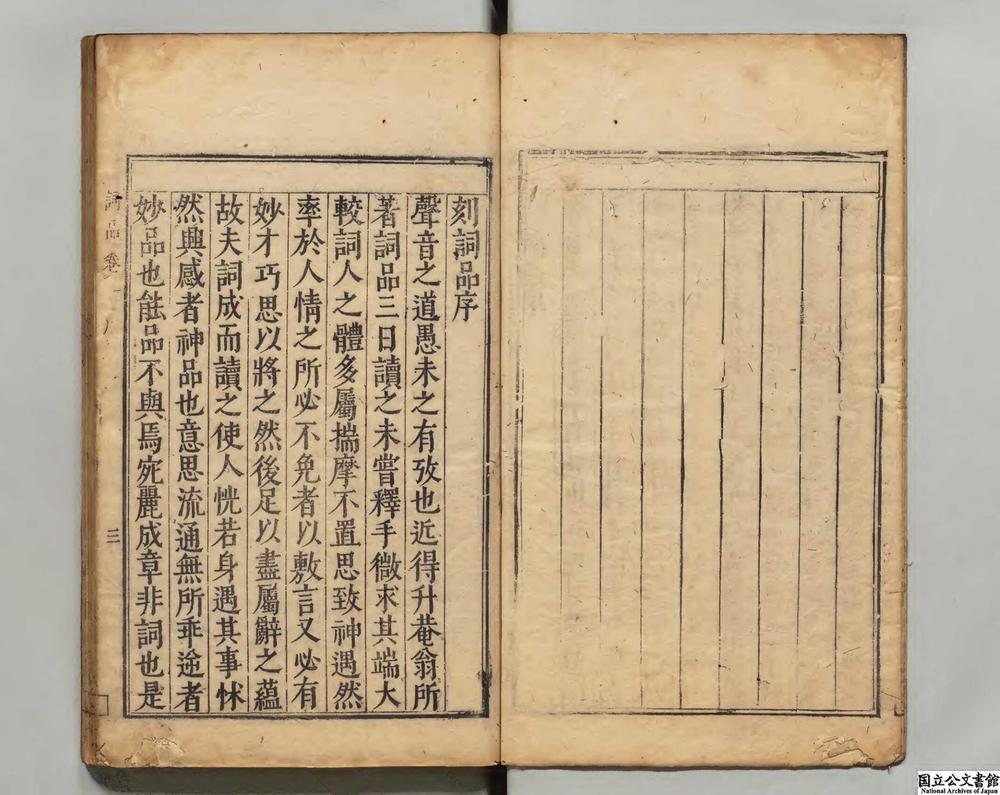 刻詞品序
聲音之道愚未之有攷也近得升菴翁所
著詞品三日讀之未嘗釋手微求其端大
較詞人之體多屬揣摩不置思致神遇然
率於人情之所必不免者以敷言又必有
妙才巧思以將之然後足以盡屬辭之蘊
故夫詞成而讀之使人恍若身遇其事怵
然興感者神品也意思流通無所乖迕者
妙品也能品不與焉宛麗成章非詞也是
詞品卷
序
三
国立公文書館
National Archives of Japan